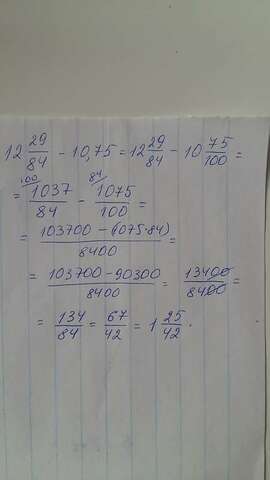 12 29/84 - 10,75 = 12 29/84 - 10 75/100 =
= 1037/84 - 1075/100 =
100 84
= 103700-(1075·84)/8400 =
= 103700-90300/8400 = 13400/8400 =
= 134/84 = 67/42 = 1 25/42.